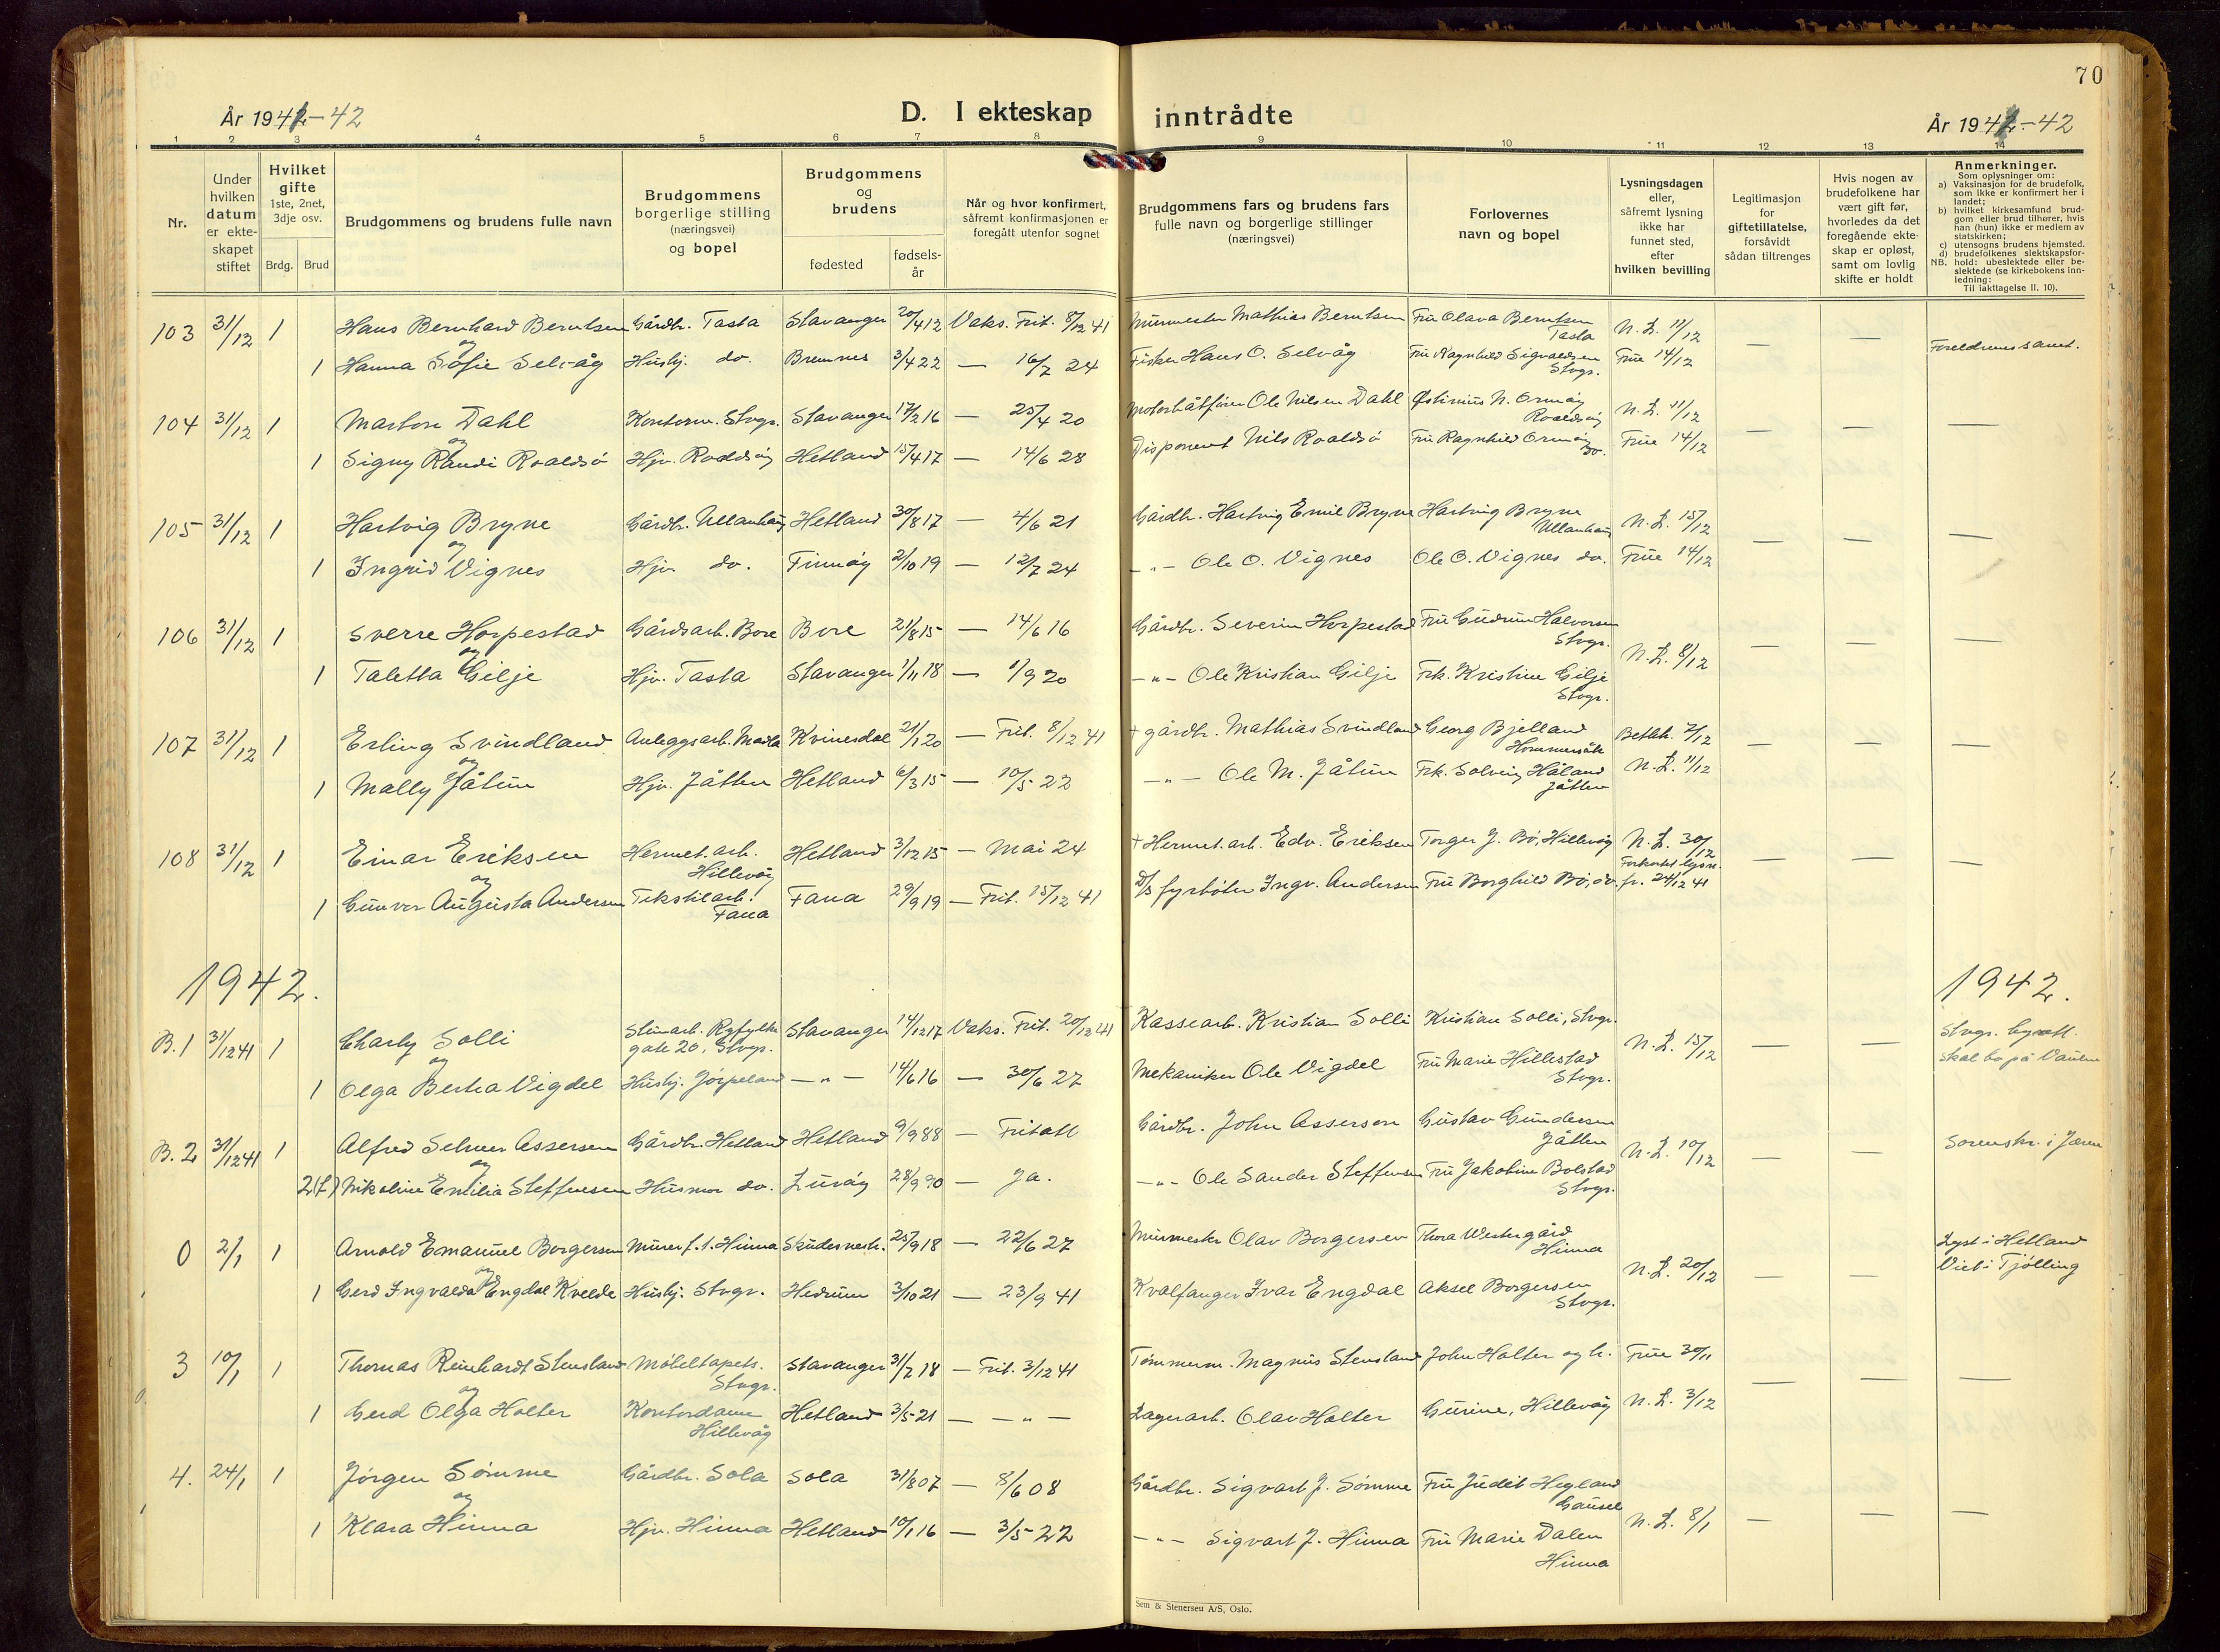 70
År 1941-42
D. I ekteskap inntrådte
År 1941-42
1 2 3 4 5 6 7 8 9 10 11 12 13 14
Nr.
Under hvilken datum er ekteskapet stiftet
Hvilket gifte 1ste, 2net, 3dje osv.
Brdg. Brud
Brudgommens og brudens fulle navn
Brudgommens borgerlige stilling (næringsvei) og bopel
Brudgommens og brudens
fødested
fødselsår
Når og hvor konfirmert, såfremt konfirmasjonen er foregått utenfor sognet
Brudgommens fars og brudens fars fulle navn og borgerlige stillinger (næringsvei)
Forlovernes navn og bopel
Lysningsdagen eller, såfremt lysning ikke har funnet sted, efter hvilken bevilling
Legitimasjon for giftetillatelse, forsåvidt sådan tiltrenges
Hvis nogen av brudefolkene har vært gift før, hvorledes da det foregående ekteskap er opløst, samt om lovlig skifte er holdt
Anmerkninger.
Som oplysninger om:
a) Vaksinasjon for de brudefolk, som ikke er konfirmert her i landet;
b) hvilket kirkesamfund brudgom eller brud tilhører, hvis han (hun) ikke er medlem av statskirken;
c) utensogns brudens hjemsted.
d) brudefolkenes slektskapsforhold: ubeslektede eller beslektede (se kirkebokens innledning:
NB.
Til iakttagelse II. 10).
103 31/12 1 Hans Bernhard Berntsen Gårdbr. Tasta Stavanger 20/4 12 Vaks. Frit. 8/12 41 Murmester Mathias Berntsen Fru Olava Berntsen Tasta N. L. 11/12 — —
og
1 Hanna Sofie Selvåg Hushj. do. Bremnes 3/4 22 — 16/7 24 Fisker Hans O. Selvåg Fru Ragnhild Sigvaldsen Stvgr. True 14/12 Foreldrenes samt.
104 31/12 1 Martin Dahl Kontorm. Stvgr. Stavanger 17/2 16 — 25/4 20 Motorbåtfører Ole Nilsen Dahl Østinius N. Ormøy Roaldsøy N. L. 11/12 — — —
og
1 Signy Randi Roaldsø Hjv. Roaldsøy Hetland 15/4 17 — 14/6 28 Disponent Nils Roaldsø Fru Ragnhild Ormøy do. True 14/12
105 31/12 1 Hartvig Bryne Gårdbr. Ullanhaug Hetland 30/8 17 — 4/6 21 Gårdbr. Hartvig Emil Bryne Hartvig Bryne Ullanhaug N. L. 15/12 — — —
og
1 Ingrid Vignes Hjv. do. Finnøy 2/10 19 — 12/7 24 —"— Ole O. Vignes Ole O. Vignes do. True 14/12
106 31/12 1 Sverre Horpestad Gårdsarb. Bore Bore 21/8 15 — 14/6 16 Gårdbr. Severin Horpestad Fru Gudrun Halvorsen Stvgr. N. L. 8/12 — — —
og
1 Taletta Gilje Hjv. Tasta Stavanger 1/11 18 — 1/9 20 —"— Ole Kristian Gilje Frk. Kristine Gilje Stvgr.
107 31/12 1 Erling Svindland Anleggsarb. Madla Kvinesdal 21/1 20 — Frit. 8/12 41 + gårdbr. Mathias Svindland Georg Bjelland Hommersåk Bethh. 7/12 — — —
og
1 Mally Jåtun Hjv. Jåtten Hetland 6/3 15 — 10/5 22 —"— Ole M. Jåtun Frk. Solveig Håland Jåtten N. L. 11/12
108 31/12 1 Einar Eriksen Hermet. arb. Hillevåg Hetland 3/12 15 — Mai 24 + Hermet. arb. Edv. Eriksen Torger J. Bø, Hillevåg N. L. 30/12 — — —
og
1 Gunvor Augusta Andersen Tekstilarb. Fana Fana 29/9 19 — Frit. 15/12 41 D/S fyrbøter Ingv. Andersen Fru Borghild Bø, do. Forkortet lysn. fr. 24/12 41
1942. 1942.
B. 1 31/12 41 1 Charly Solli Stenarb. Ryfylke gate 20, Stvgr. Stavanger 14/12 17 Vaks. Frit. 20/12 41 Kassearb. Kristian Solli Kristian Solli, Stvgr. N. L. 15/12 — — Stvgr. byrett. Skal bo på Vaulen
og
1 Olga Berta Vigdel Hushj. Jørpeland —"— 14/6 16 — 30/6 27 Mekaniker Ole Vigdel Fru Marie Hillestad Stvgr.
B. 2 31/12 41 1 Alfred Selmer Assersen Gårdbr. Hetland Hetland 9/9 88 — Fritatt Gårdbr. John Asserson Gustav Gundersen Jåtten N. L. 10/12 — — Sorenskr. i Jæren
og
2(f) Nikoline Emilia Steffensen Husmor do. Lurøy 28/9 90 — Ja. —"— Ole Sander Steffensen Fru Jakobine Bolstad Stvgr.
0 2/1 1 Arnold Emanuel Borgersen Murer f. t. Hinna Skudenesh. 25/9 18 — 22/6 27 Murmester Olav Borgersen Thora Westergård Hinna N. L. 20/12 — — Lyst i Hetland Viet i Tjølling
og
1 Gerd Ingvalda Engdal Kvelde Hushj. Stvgr. Hedrum 3/10 21 — 23/9 41 Kvalfanger Ivar Engdal Aksel Borgersen Stvgr.
3 10/1 1 Thomas Reinhardt Stensland Møbeltapets. Stvgr. Stavanger 31/7 18 — Frit. 3/12 41 Tømmerm. Magnus Stensland John Holter og h. True 30/11 — — —
og
1 Gerd Olga Holter Kontordame Hillevåg Hetland 3/5 21 — —"— Lagerarb. Olav Holter Gurine, Hillevåg N. L. 3/12
4. 24/1 1 Jørgen Sømme Gårdbr. Sola Sola 31/8 07 — 8/6 08 Gårdbr. Sigvart J. Sømme Fru Judit Hegland Gausel N. L. 8/1 — — —
og
1 Klara Hinna Hjv. Hinna Hetland 10/1 16 — 3/5 22 —"— Sigvart J. Hinna Fru Marie Dalen Hinna
Sem & Stenersen A/S, Oslo.